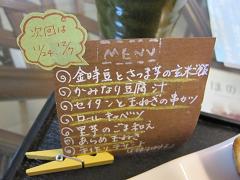 次回は
11/24, 12/7
MENU
金時豆とさつま芋の玄米ご飯
かみなり豆腐汁
セイタンと玉ねぎの串カツ
ロールキャベツ
里芋のごま和え
あらめ